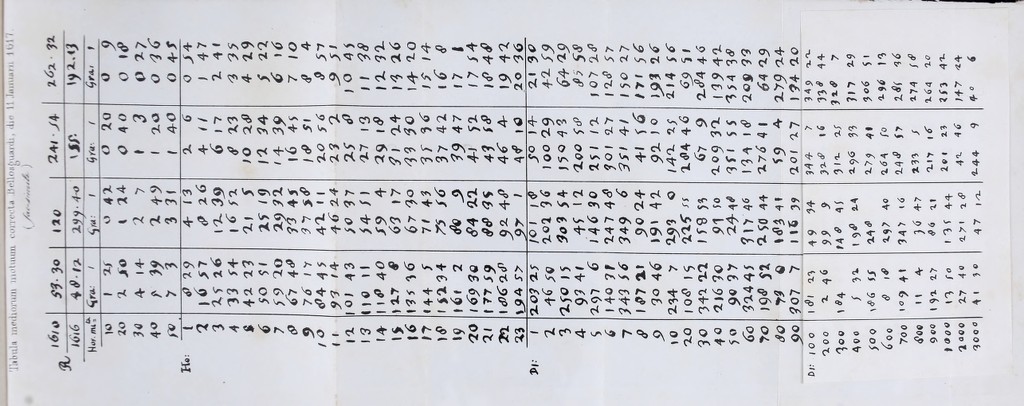 Tabula mediorum motuum correcta Bellosguardi, die 11 Januarii 1617.
℞ 1610 53.30 120 241.14 262.32
1616 48.12 299.40 188. 192.13
Hor. mi. Gra: 1 Gra: 1 Gra: 1 Gra: 1
10 1 25 0 42 0 20 0 9
20 2 50 1 24 0 40 0 18
30 4 14 2 7 1 0 27
40 5 39 2 49 1 20 0 36
50 7 3 3 31 1 40 0 45
Ho: 1 8 29 4 13 2 6 0 54
2 16 57 8 26 4 11 1 47
3 25 26 12 39 6 17 2 41
4 33 54 16 52 8 23 3 35
5 42 23 21 5 10 28 4 29
6 50 51 25 19 12 34 5 22
7 59 20 29 32 14 39 6 16
8 67 48 33 45 16 45 7 10
9 76 17 37 58 18 51 8 4
10 84 45 42 11 20 56 8 57
11 93 14 46 24 23 2 9 51
12 101 43 50 37 25 8 10 45
13 110 11 54 51 27 13 11 38
14 118 40 59 4 29 18 12 32
15 127 8 63 17 31 24 13 26
16 135 36 67 30 33 30 14 20
17 144 5 71 43 35 36 15 14
18 152 34 75 56 37 42 16 8
19 161 2 80 9 39 47 17 1
20 169 30 84 22 41 52 17 54
21 177 59 88 35 43 58 18 48
22 186 28 92 48 46 4 19 42
23 194 57 97 1 48 10 20 36
Di: 1 203 25 101 18 50 14 21 30
2 46 50 202 36 100 29 42 59
3 250 15 303 54 150 43 64 29
4 93 41 45 12 200 58 85 58
5 297 6 146 30 251 12 107 28
6 140 31 247 48 301 27 128 57
7 343 56 349 6 351 41 150 27
8 187 21 90 24 41 56 171 56
9 30 46 191 42 92 10 193 26
10 234 7 293 0 142 25 214 56
20 108 15 225 55 284 46 69 51
30 342 22 158 59 67 9 284 46
40 216 30 91 209 32 139 42
50 90 37 24 48 351 55 354 38
60 324 45 317 46 134 18 209 33
70 198 52 250 44 276 41 64 29
80 73 0 183 41 59 4 279 24
90 307 7 116 39 201 27 134 20
Di: 100 181 23 49 34 344 349 22
200 2 46 99 9 328 16 338 44
300 184 148 45 312 25 328 7
400 5 32 198 24 296 33 317 29
500 186 55 248 279 41 306 51
600 8 18 297 40 264 50 296 13
700 109 41 347 16 248 57 281 36
800 11 4 36 47 233 5 274 18
900 192 27 86 21 217 16 264 20
1000 13 50 135 44 201 23 253 42
2000 27 40 271 28 42 46 147 24
3000 41 30 47 12 244 9 40 6